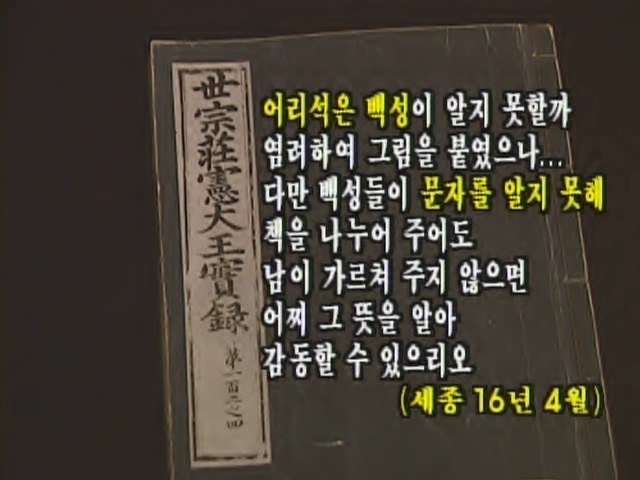 世宗莊憲大王實錄
第一百二之四
어리석은 백성이 알지 못할까
염려하여 그림을 붙였으나...
다만 백성들이 문자를 알지 못해
책을 나누어 주어도
남이 가르쳐 주지 않으면
어찌 그 뜻을 알아
감동할 수 있으리오
(세종 16년 4월)